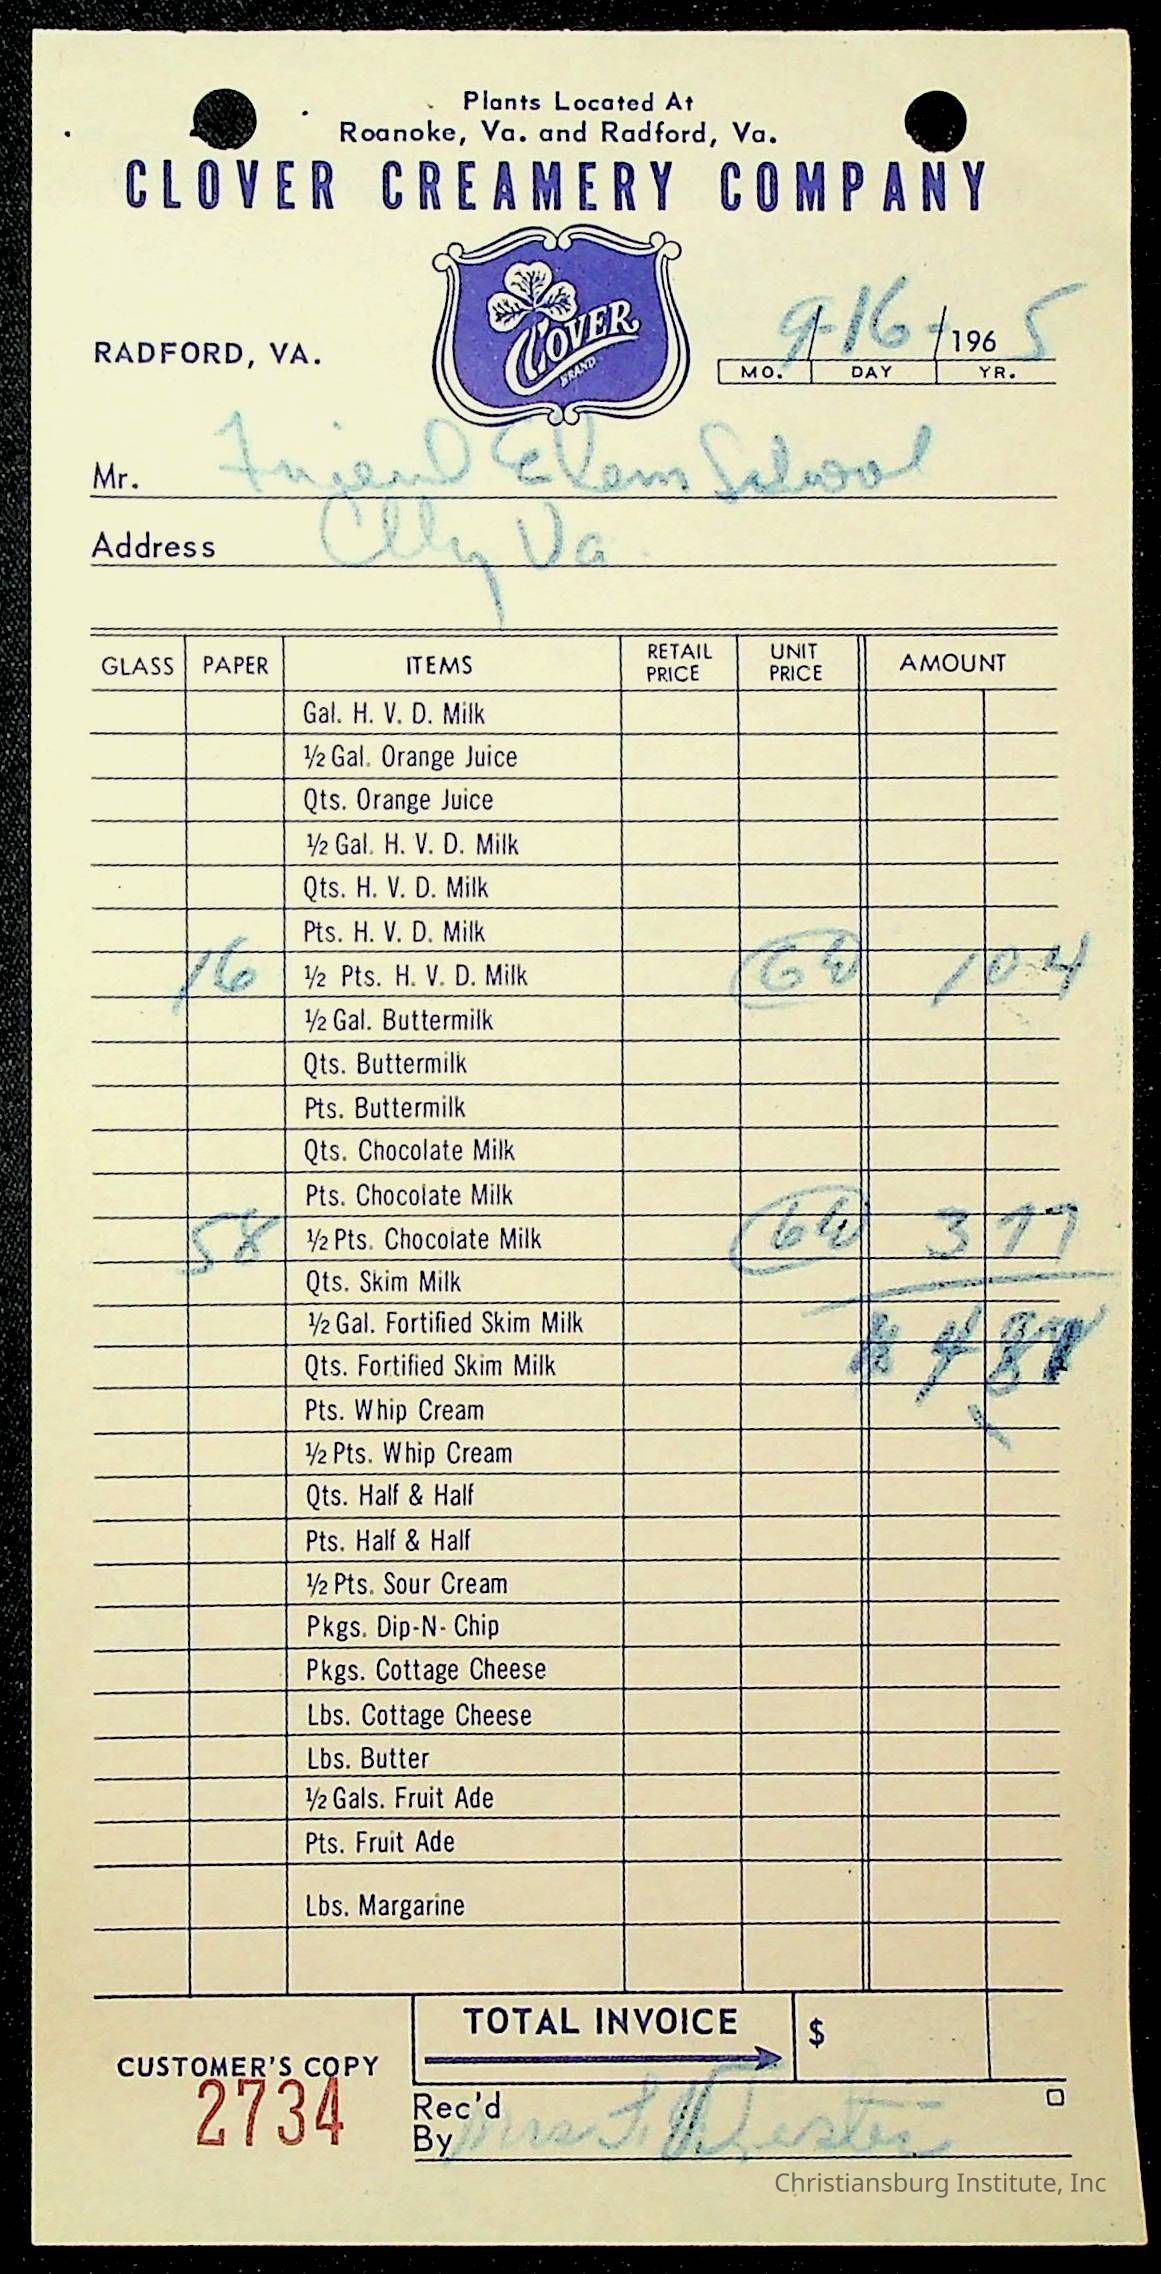 Plants Located At
Roanoke, Va. and Radford, Va.
CLOVER CREAMERY COMPANY
CLOVER
BRAND
RADFORD, VA.
9-16- 1965
MO. DAY YR.
Mr. Friend Elem School
Address Va.
GLASS PAPER ITEMS RETAIL PRICE UNIT PRICE AMOUNT
Gal. H. V. D. Milk
½ Gal. Orange Juice
Qts. Orange Juice
½ Gal. H. V. D. Milk
Qts. H. V. D. Milk
Pts. H. V. D. Milk
16 ½ Pts. H. V. D. Milk 1 04
½ Gal. Buttermilk
Qts. Buttermilk
Pts. Buttermilk
Qts. Chocolate Milk
Pts. Chocolate Milk
58 ½ Pts. Chocolate Milk 3 77
Qts. Skim Milk
½ Gal. Fortified Skim Milk
Qts. Fortified Skim Milk
Pts. Whip Cream
½ Pts. Whip Cream
Qts. Half & Half
Pts. Half & Half
½ Pts. Sour Cream
Pkgs. Dip-N-Chip
Pkgs. Cottage Cheese
Lbs. Cottage Cheese
Lbs. Butter
½ Gals. Fruit Ade
Pts. Fruit Ade
Lbs. Margarine
TOTAL INVOICE $
CUSTOMER'S COPY
2734
Rec'd
By Mrs
Christiansburg Institute, Inc